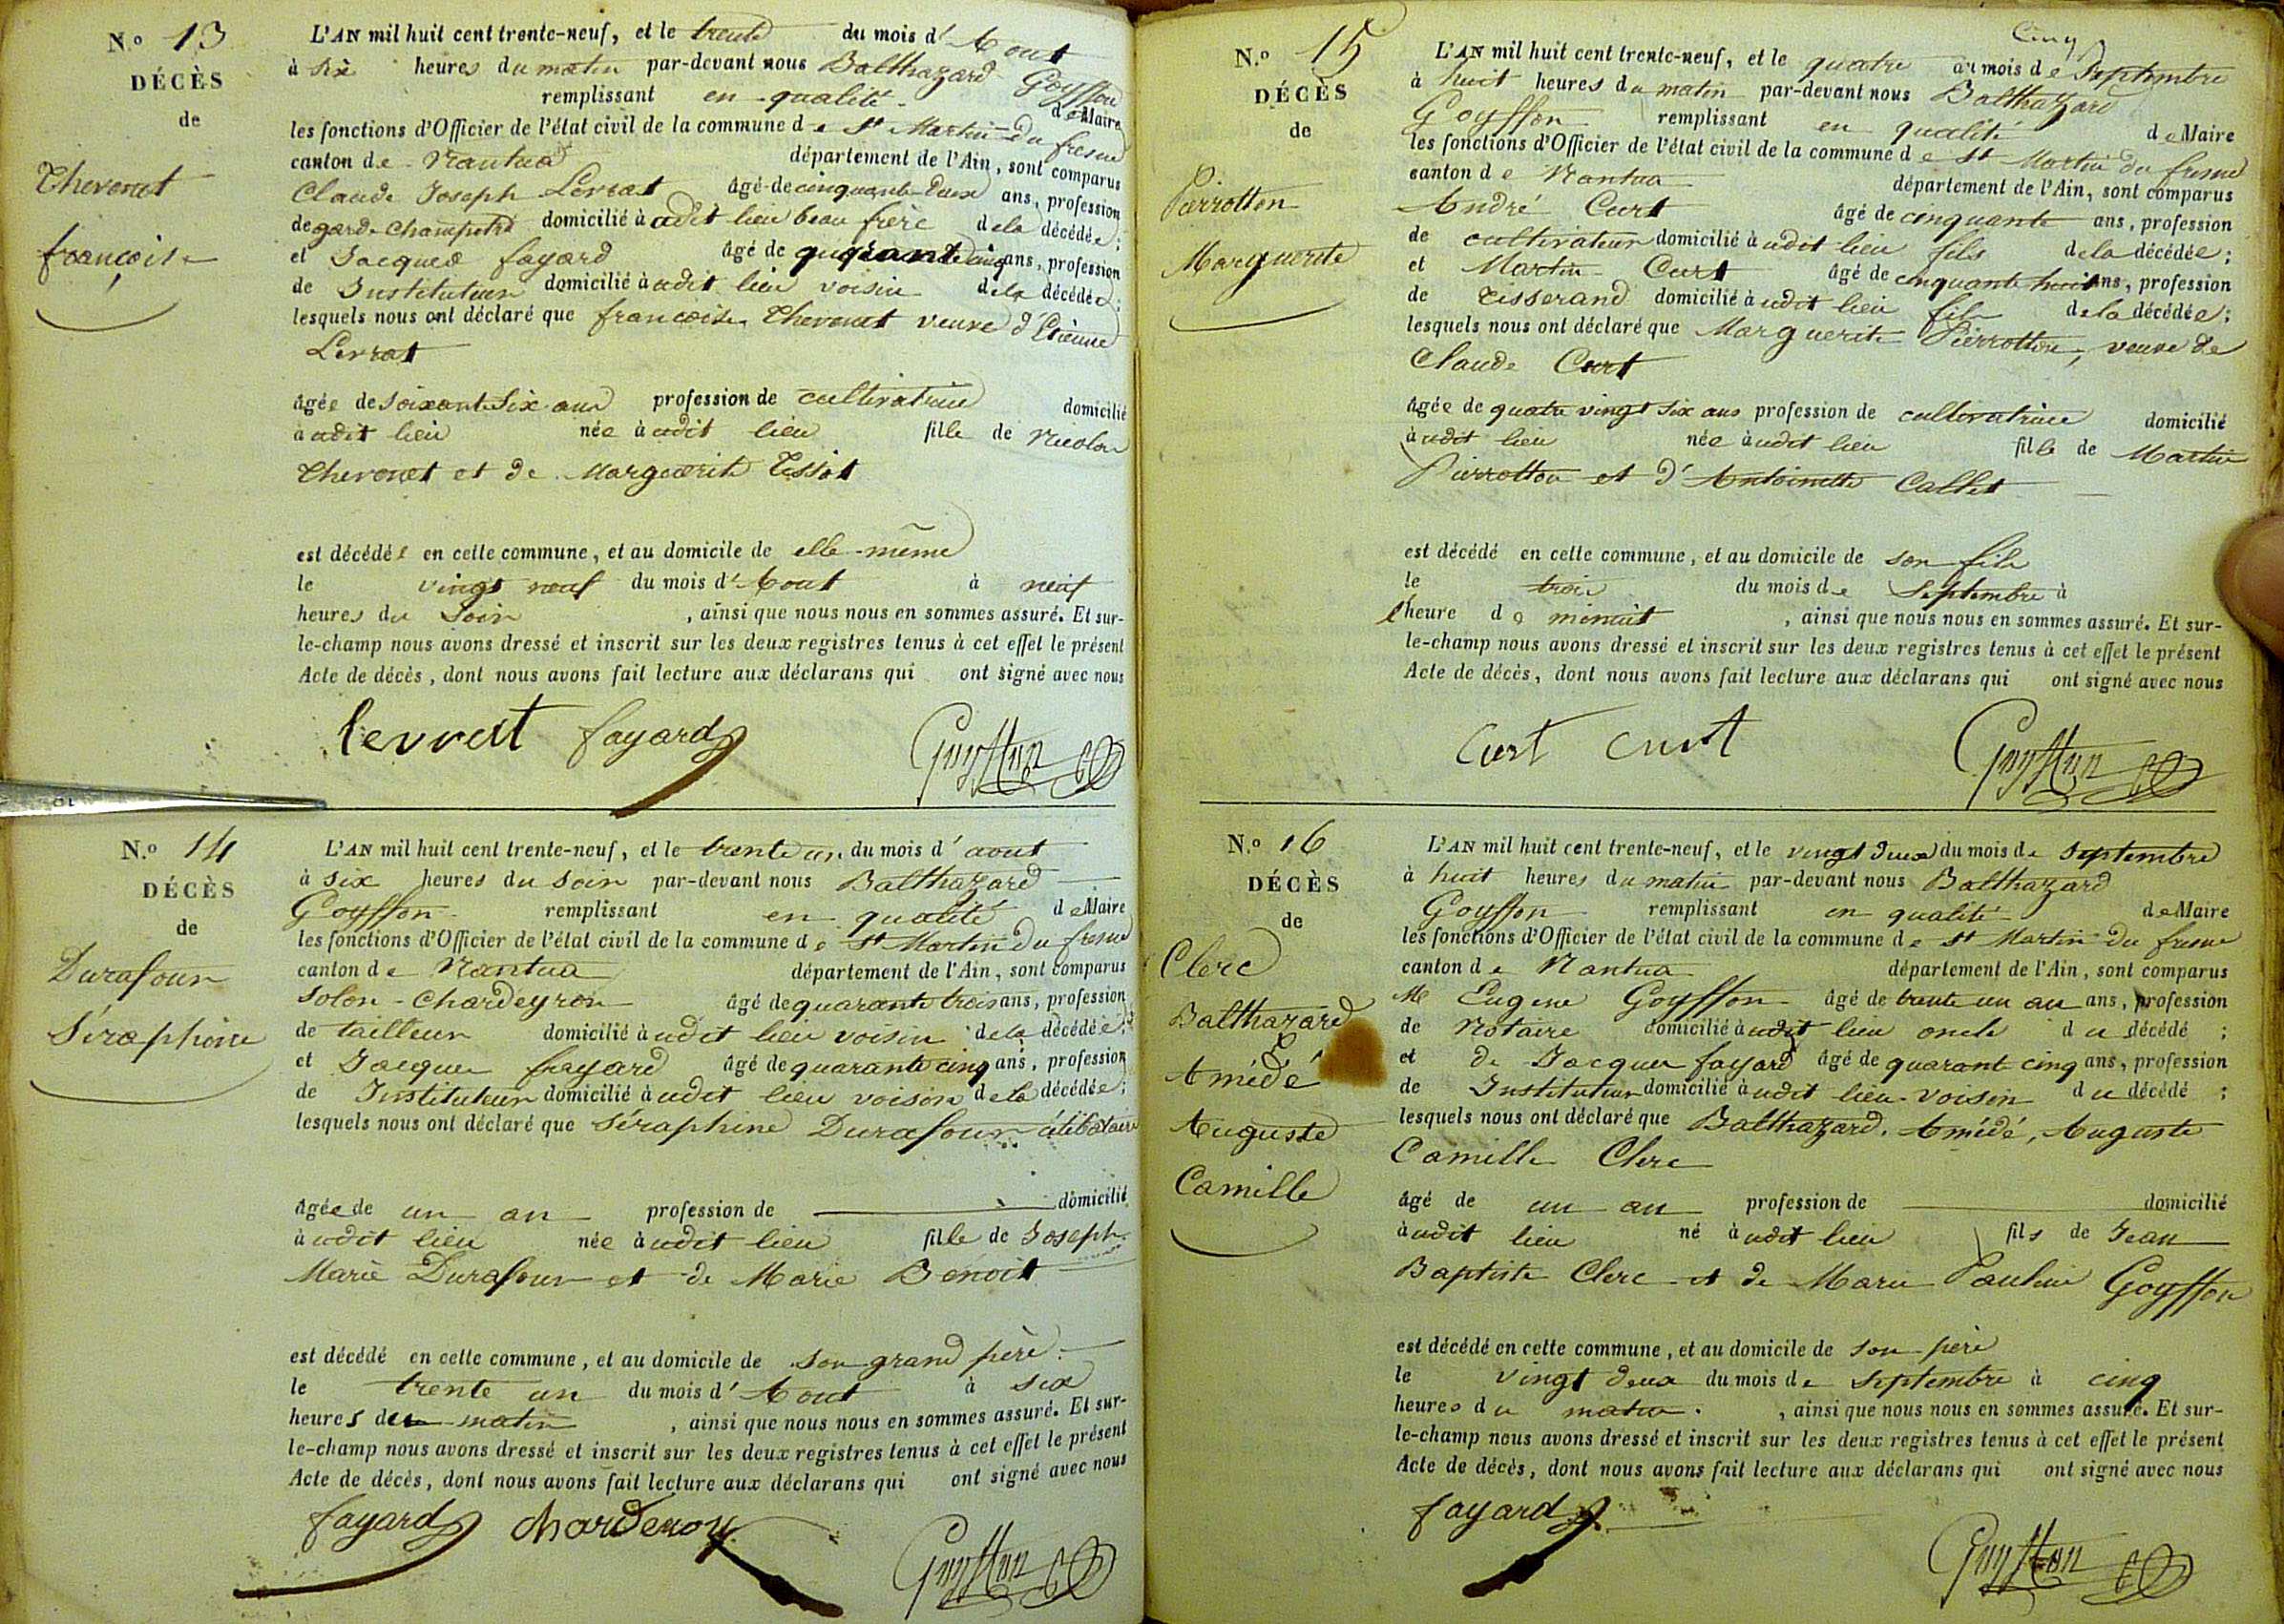 N.o 13
DÉCÈS
de
Thevenet
françoise
L'AN mil huit cent trente-neuf, et le trente du mois d'Aout
à six heures du matin par-devant nous Balthazard Goyffon
remplissant en qualité de Maire
les fonctions d'Officier de l'état civil de la commune de St Martin du fresne
canton de Nantua département de l'Ain, sont comparus
Claude Joseph Levrat âgé de cinquante deux ans, profession
de garde champetre domicilié à udit lieu beau frère de la décédée;
et Jacques fayard âgé de quarante cinq ans, profession
de Instituteur domicilié à udit lieu voisin de la décédée;
lesquels nous ont déclaré que francoise Thevenet veuve d'Etienne
Levrat
âgée de soixante six ans profession de cultivatrice domicilié
à udit lieu née à udit lieu fille de Nicolas
Thevenet et de Marguerite Tissot
est décédée en cette commune, et au domicile de elle-même
le vingt neuf du mois d'Aout à neuf
heures du Soir, ainsi que nous nous en sommes assuré. Et sur-
le-champ nous avons dressé et inscrit sur les deux registres tenus à cet effet le présent
Acte de décès, dont nous avons fait lecture aux déclarans qui ont signé avec nous
levrat fayard Goyffon
N.o 14
DÉCÈS
de
Durafour
Séraphine
L'AN mil huit cent trente-neuf, et le trente un du mois d'aout
à six heures du soir par-devant nous Balthazard
Goyffon remplissant en qualité de Maire
les fonctions d'Officier de l'état civil de la commune de St Martin du fresne
canton de Nantua département de l'Ain, sont comparus
Solon-Chardeyron âgé de quarante trois ans, profession
de tailleur domicilié à udit lieu voisin de la décédée;
et Jacques fayard âgé de quarante cinq ans, profession
de Instituteur domicilié à udit lieu voisin de la décédée;
lesquels nous ont déclaré que Séraphine Durafour célibataire
âgée de un an profession de domicilié
à udit lieu née à udit lieu fille de Joseph
Marie Durafour et de Marie Benoit
est décédé en cette commune, et au domicile de son grand père
le trente un du mois d'Aout à six
heures du matin, ainsi que nous nous en sommes assuré. Et sur-
le-champ nous avons dressé et inscrit sur les deux registres tenus à cet effet le présent
Acte de décès, dont nous avons fait lecture aux déclarans qui ont signé avec nous
fayard Goyffon
N.o 15
DÉCÈS
de
Pierrotton
Marguerite
Cinq
L'AN mil huit cent trente-neuf, et le quatre du mois de Septembre
à huit heures du matin par-devant nous Balthazard
Goyffon remplissant en qualité de Maire
les fonctions d'Officier de l'état civil de la commune de St Martin du fresne
canton de Nantua département de l'Ain, sont comparus
André Curt âgé de cinquante ans, profession
de cultivateur domicilié à udit lieu fils de la décédée;
et Martin Curt âgé de cinquante huit ans, profession
de tisserand domicilié à udit lieu fils de la décédée;
lesquels nous ont déclaré que Marguerite Pierrotton, veuve de
Claude Curt
âgée de quatre vingt six ans profession de cultivatrice domicilié
à udit lieu née à udit lieu fille de Martin
Pierrotton et d'Antoinette Callet
est décédé en cette commune, et au domicile de son fils
le trois du mois de Septembre à
l'heure de minuit, ainsi que nous nous en sommes assuré. Et sur-
le-champ nous avons dressé et inscrit sur les deux registres tenus à cet effet le présent
Acte de décès, dont nous avons fait lecture aux déclarans qui ont signé avec nous
Curt Curt Goyffon
N.o 16
DÉCÈS
de
Clerc
Balthazard
Amédé
Auguste
Camille
L'AN mil huit cent trente-neuf, et le vingt deux du mois de Septembre
à huit heures du matin par-devant nous Balthazard
Goyffon remplissant en qualité de Maire
les fonctions d'Officier de l'état civil de la commune de St Martin du fresne
canton de Nantua département de l'Ain, sont comparus
Me Eugene Goyffon âgé de trente un an ans, profession
de Notaire domicilié à udit lieu oncle du décédé;
et de Jacques fayard âgé de quarante cinq ans, profession
de Instituteur domicilié à udit lieu voisin du décédé;
lesquels nous ont déclaré que Balthazard, Amédé, Auguste
Camille Clerc
âgé de un an profession de domicilié
à udit lieu né à udit lieu fils de Jean
Baptiste Clerc et de Marie Pauline Goyffon
est décédé en cette commune, et au domicile de son père
le vingt deux du mois de Septembre à cinq
heures du matin, ainsi que nous nous en sommes assuré. Et sur-
le-champ nous avons dressé et inscrit sur les deux registres tenus à cet effet le présent
Acte de décès, dont nous avons fait lecture aux déclarans qui ont signé avec nous
fayard Goyffon